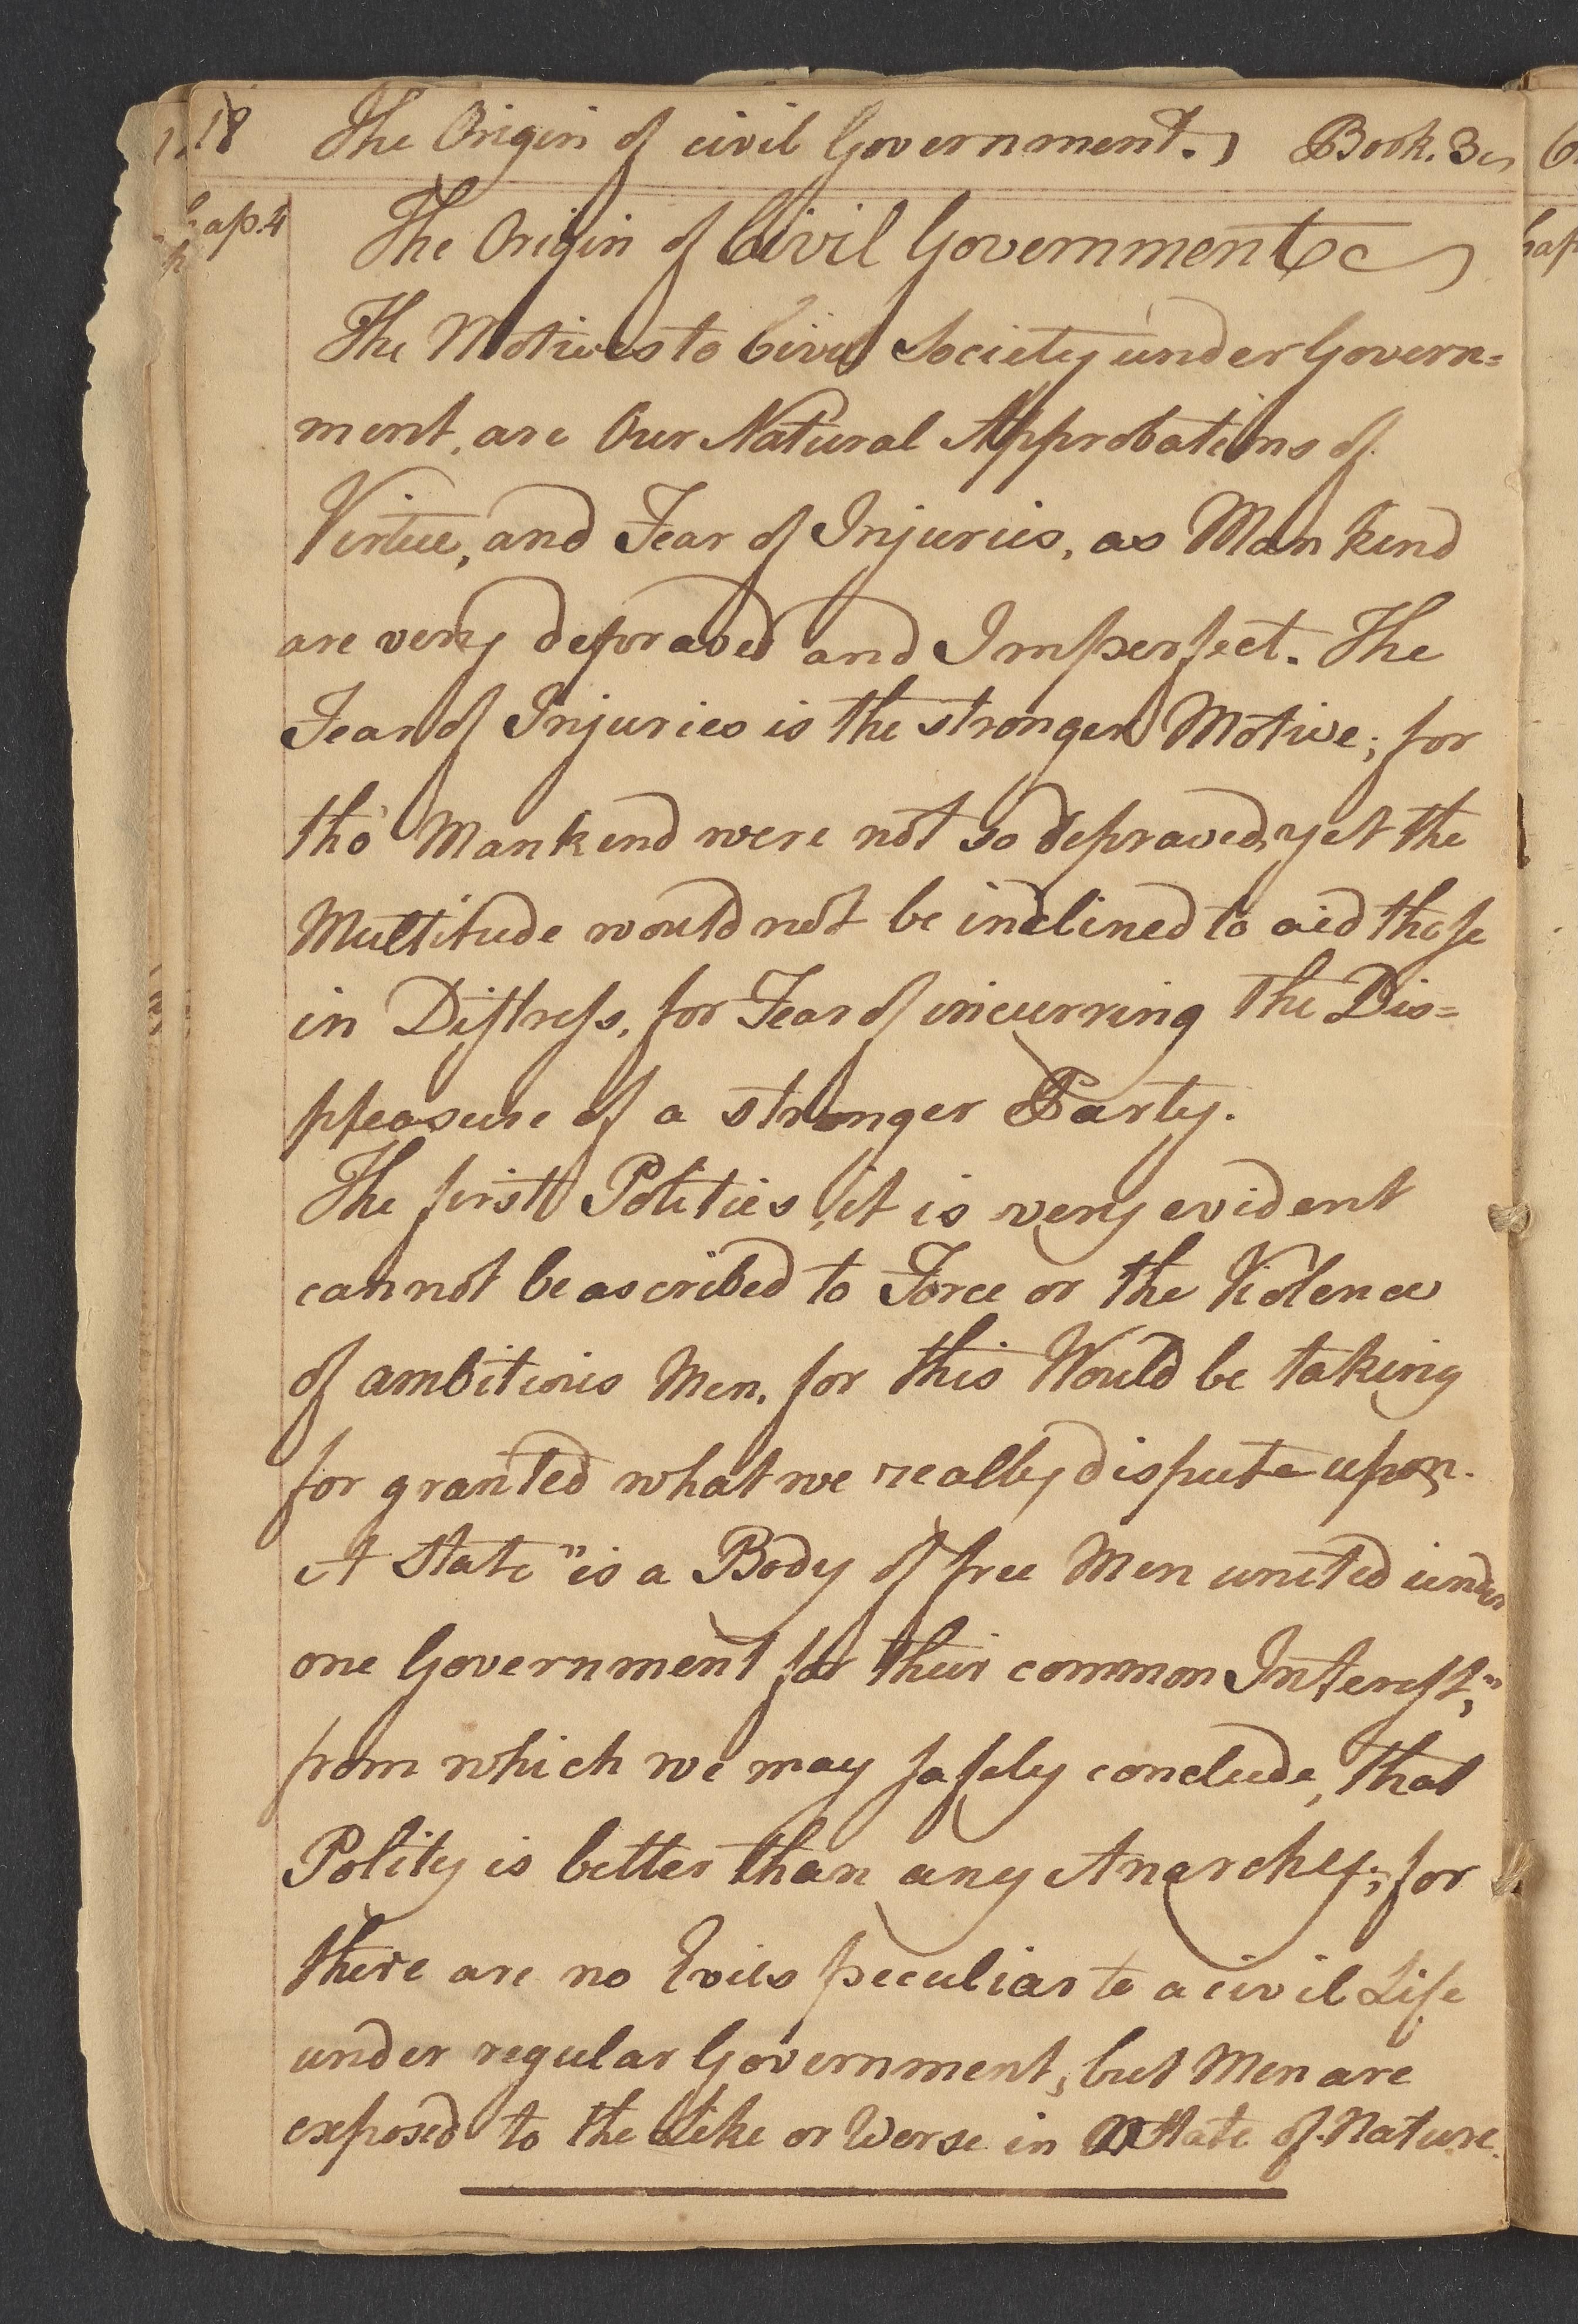 18 The Origin of civil Government. Book. 3
Chap. 4 The Origin of Civil Government
The Motives to Civil Society under Govern=
ment, are Our Natural Approbations of
Virtue, and Fear of Injuries, as Mankind
are very depraved and Imperfect. The
Fear of Injuries is the stronger Motive; for
tho' Mankind were not so depraved, yet the
Multitude would not be inclined to aid those
in Distress, for Fear of incurring the Dis=
pleasure of a stronger Party.
The first Polities, it is very evident
cannot be ascribed to Force or the Violence
of ambitious Men, for this Would be taking
for granted what we really dispute upon.
A State "is a Body of free Men united under
one Government for their common Interest,"
from which we may safely conclude, that
Polity is better than any Anarchy; for
there are no Evils peculiar to a civil Life
under regular Government, but Men are
exposed to the Like or Worse in a State of Nature.